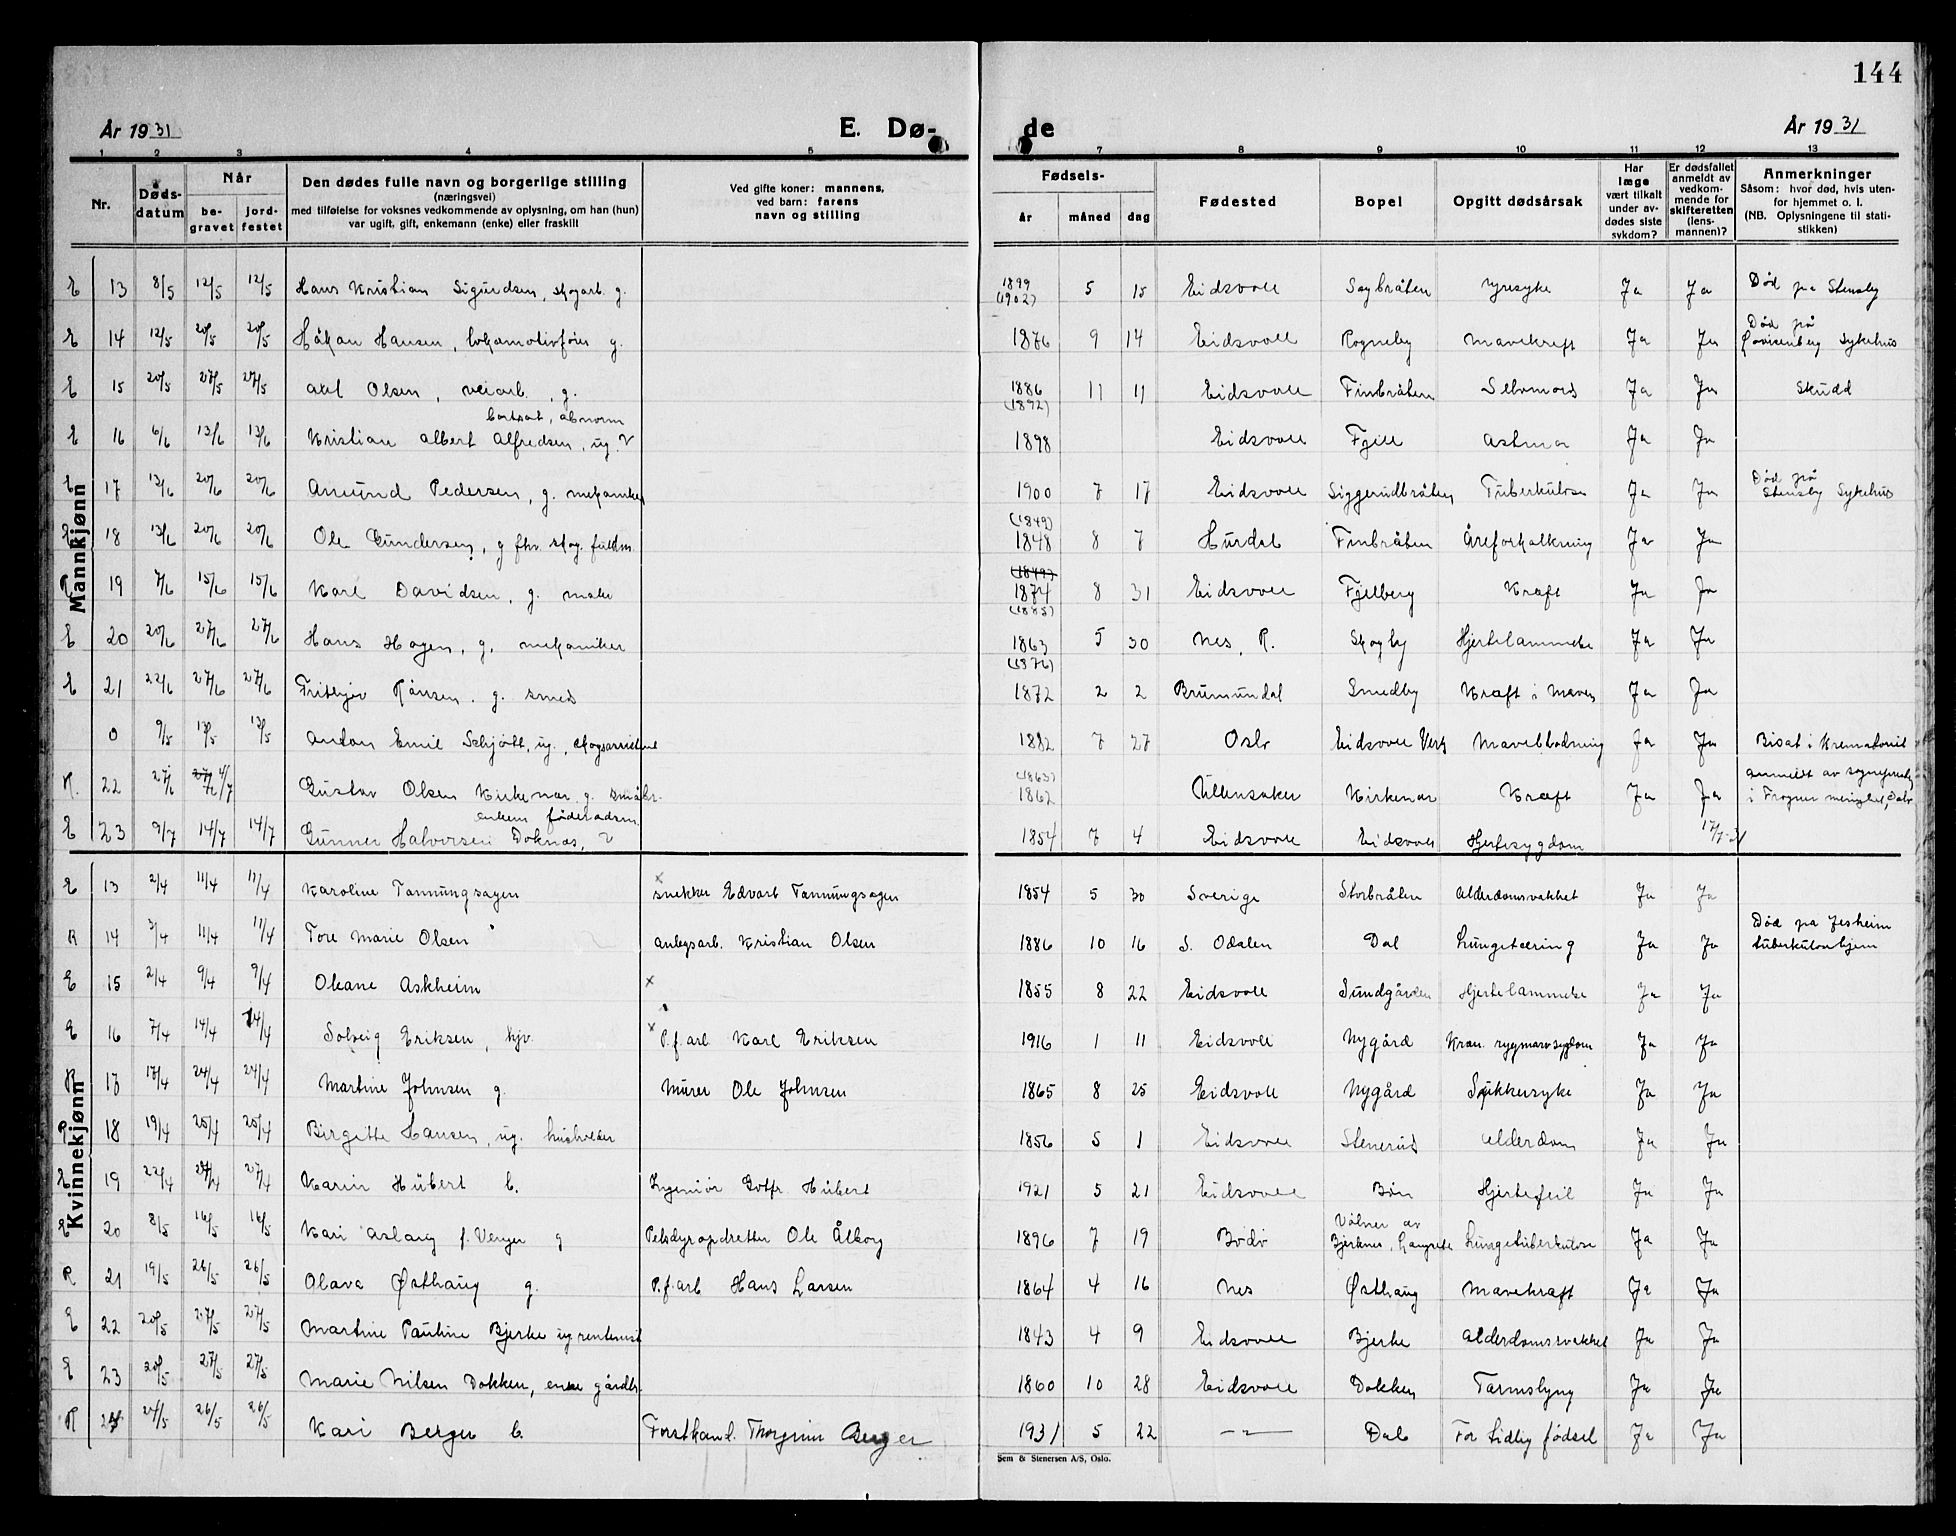 144
År 1931 E. Dø- de År 1931
1 2 3 4 5 7 8 9 10 11 12 13
Nr. Døds-datum Når be-gravet jord-festet Den dødes fulle navn og borgerlige stilling (næringsvei) med tilføielse for voksnes vedkommende av oplysning, om han (hun) var ugift, gift, enkemann (enke) eller fraskilt Ved gifte koner: mannens, ved barn: farens navn og stilling Fødsels- år måned dag Fødested Bopel Opgitt dødsårsak Har læge vært tilkalt under av-dødes siste sykdom? Er dødsfallet anmeldt av vedkom-mende for skifteretten (lens-mannen)? Anmerkninger Såsom: hvor død, hvis uten-for hjemmet o. l. (NB. Oplysningene til stati-stikken)
Mannkjønn
E 13 8/5 12/5 12/5 Hans Kristian Sigurdsen, skogarb. g. 1899 (1902) 5 15 Eidsvoll Sagbråten nyresyke Ja Ja Død på Stensby
E 14 12/5 20/5 20/5 Håkan Hansen, lokomotivfører g. 1876 9 14 Eidsvoll Rogneby Mavekreft Ja Ja Død på Lovisenberg Sykehus
E 15 20/5 27/5 27/5 Axel Olsen, veiarb., g. 1886 (1892) 11 11 Eidsvoll Finbråten Selvmord Ja Ja Skudd
E 16 6/6 13/6 13/6 Kristian Albert Alfredsen, ug. bortsat, abnorm 1898 Eidsvoll Fjell Astma Ja Ja
E 17 13/6 20/6 20/6 Amund Pedersen, g. mekaniker 1900 7 17 Eidsvoll Siggerudbråten Tuberkulose Ja Ja Død på Stensby Sykehus
E 18 13/6 20/6 20/6 Ole Gundersen, g. fhv. skog. fuldm. (1849) 1848 8 7 Hurdal Finbråten Åreforkalkning Ja Ja
R 19 7/6 15/6 15/6 Karl Davidsen, g. maler (1849) 1874 (1885) 8 31 Eidsvoll Fjellberg Kreft Ja Ja
E 20 20/6 27/6 27/6 Hans Hagen, g. mekaniker 1863 5 30 Nes, R. Skogby Hjertelammelse Ja Ja
E 21 22/6 27/6 27/6 Fritjov Rånsen, g. smed (1876) 1872 2 2 Brumundal Smedby Kreft i maven Ja Ja
0 9/5 13/5 13/5 Anton Emil Schjøtt, ug., 1882 7 27 Oslo Eidsvoll Verk Maveblødning Ja Ja Bisat i Krematoriet
R. 22 27/6 27/6 4/7 Gustav Olsen Kirkenær, g. småbr. (1863) 1862 Ullensaker Kirkenær Kreft Ja Ja Anmeldt av sogneprest i Frogner menighet, Oslo
E 23 9/7 14/7 14/7 Gunner Halvorsen Doknes, enkem. føderådsm. 1854 7 4 Eidsvoll Eidsvoll Hjertesygdom 17/7-31
Kvinnekjønn
E 13 2/4 11/4 11/4 Karoline Tannungsagen x snekker Edvart Tannungsagen 1854 5 30 Sverige Storbråten Alderdomsvakhet Ja Ja
R 14 3/4 11/4 11/4 Tore Marie Olsen anlegsarb. Kristian Olsen 1886 10 16 S. Odalen Dal Lungetæring Ja Ja Død på Jesheim tuberkulosehjem
E 15 2/4 9/4 9/4 Oleane Askheim x 1855 8 22 Eidsvoll Sundgården Hjertelammelse Ja Ja
E 16 7/4 14/4 14/4 Solveig Eriksen, hjv. x P.f.arb. Karl Eriksen 1916 1 11 Eidsvoll Nygård Kron. rygmarvsygdom Ja Ja
R 17 17/4 24/4 24/4 Martine Johnsen g. Murer Ole Johnsen 1865 8 25 Eidsvoll Nygård Sukkersyke Ja Ja
R 18 19/4 25/4 25/4 Birgitte Hansen, ug. husholder 1856 5 1 Eidsvoll Stenerud Alderdom Ja Ja
E 19 22/4 27/4 27/4 Karin Hübert b. Ingeniør Gotfr. Hübert 1921 5 21 Eidsvoll Bøn Hjertefeil Ja Ja
E 20 8/5 16/5 16/5 Kari Aslaug f. Venger g Pelsdyropdretter Ole Ålborg 1896 7 19 Bodø Bjerknes, Langsete Lungetuberkulose Ja Ja
R 21 19/5 26/5 26/5 Olava Østhaug g. P.f.arb Hans Larsen 1864 4 16 Nes Østhaug Mavekreft Ja Ja
E 22 20/5 27/5 27/5 Martine Pauline Bjerke ug rentenist 1843 4 9 Eidsvoll Bjerke Alderdomsvakhet Ja Ja
E 23 20/5 27/5 27/5 Marie Nilsen Dokken, enke gårdbr. 1860 10 28 Eidsvoll Dokken Tarmslyng Ja Ja
R 24 24/5 26/5 26/5 Kari Berger b. Forstkand. Thorgrim Berger 1931 5 22 —"— Dal For tidlig fødsel Ja Ja
Sem & Stenersen A/S, Oslo.